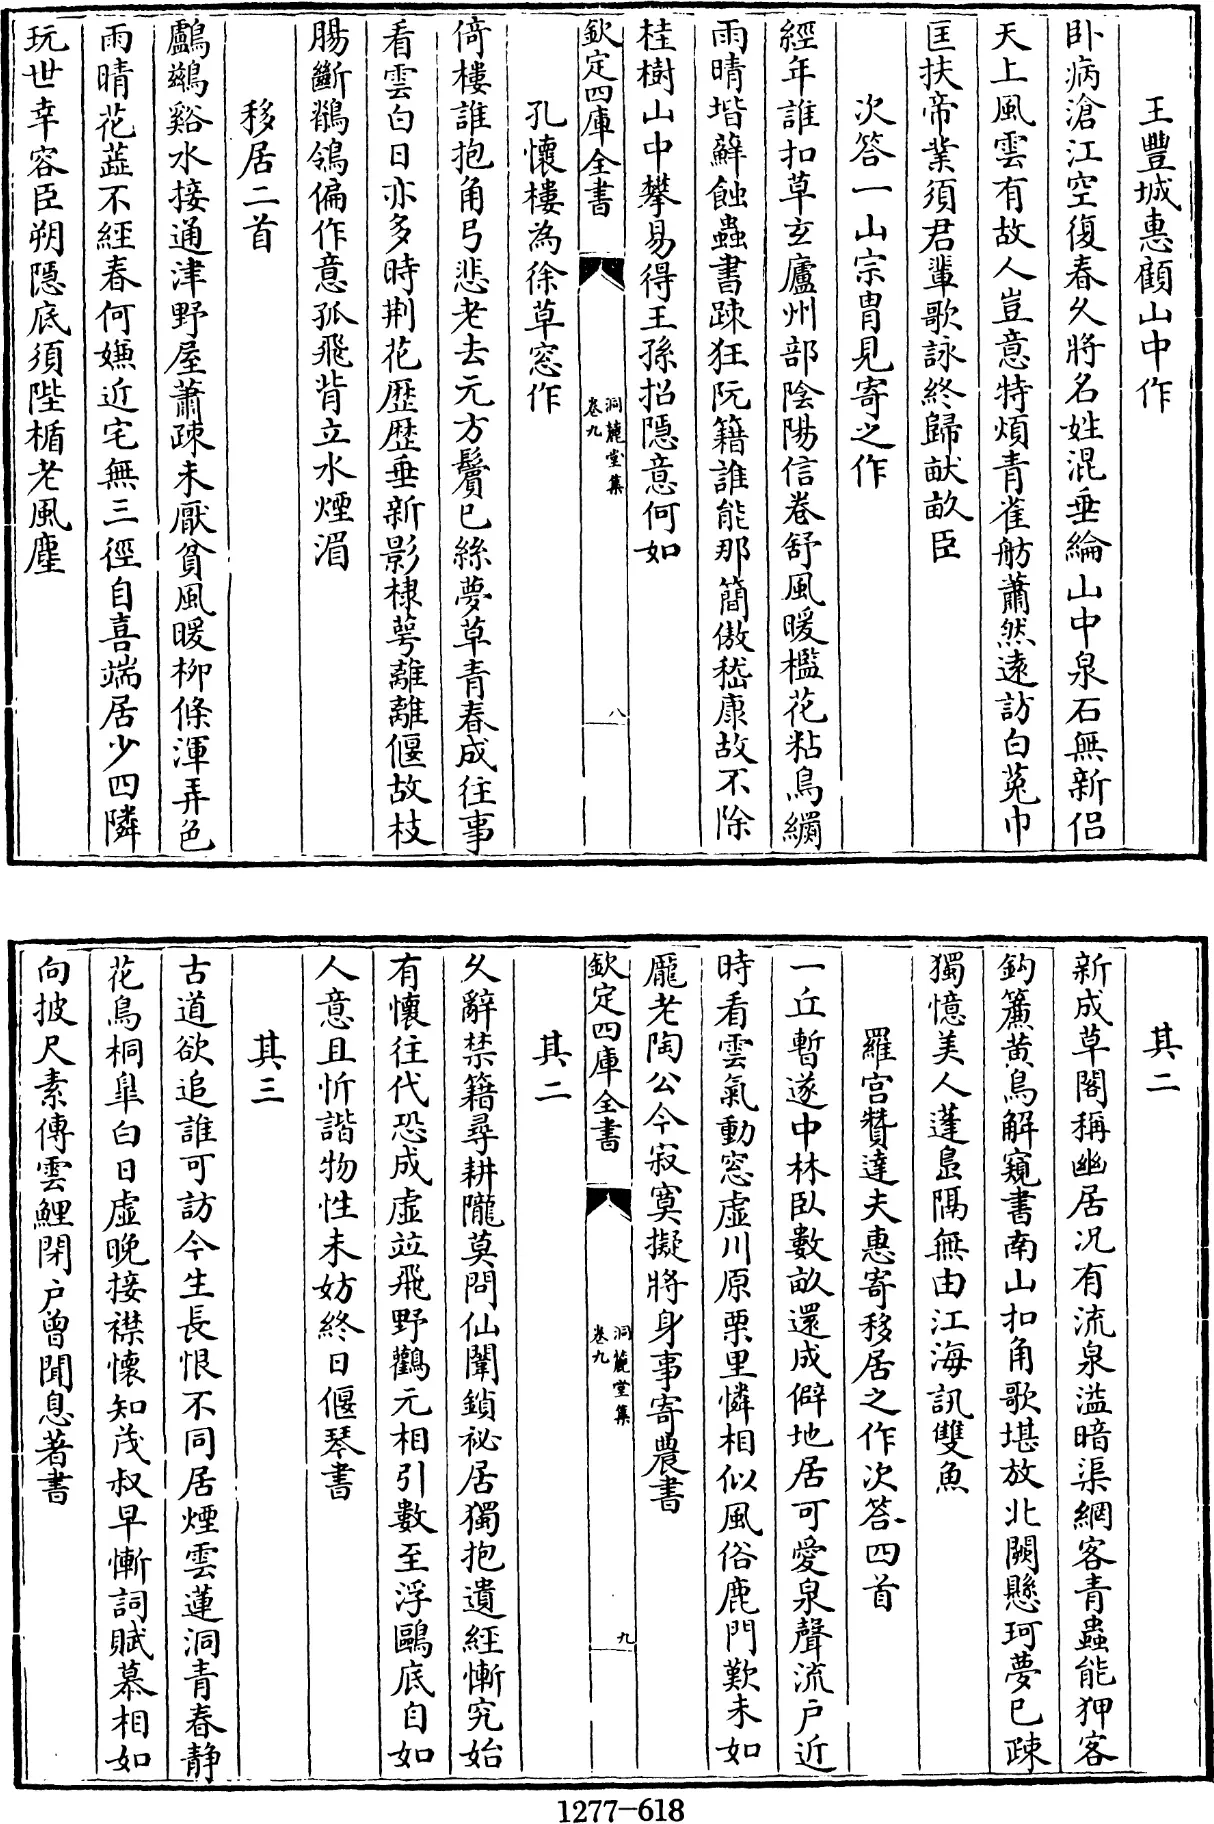 王豐城惠顧山中作
卧病滄江空復春久將名姓混垂綸山中泉石無新侣
天上風雲有故人豈意特煩青雀舫蕭然遠訪白莵巾
匡扶帝業須君輩歌詠終歸畎畝臣
次答一山宗胄見寄之作
經年誰扣草玄廬州部陰陽信卷舒風暖檻花粘鳥纲
雨晴堦蘚蝕蟲書踈狂阮籍誰能那簡傲嵇康故不除
桂樹山中攀易得王孫招隱意何如
欽定四庫全書
洞麓堂集
卷九
八
孔懷樓為徐草窓作
倚樓誰抱角弓悲老去元方鬢已絲夢草青春成往事
看雲白日亦多時荆花歷歷垂新影棣萼離離偃故枝
腸斷鶺鴒偏作意孤飛背立水煙湄
移居二首
鸕鷀谿水接通津野屋蕭踈未厭貧風暖柳條渾弄色
雨晴花蘂不經春何嫌近宅無三徑自喜端居少四隣
玩世幸容臣朔隱底須陛楯老風塵
其二
新成草閣稱幽居况有流泉溢暗渠網客青蟲能狎客
鈎簾黄鳥解窺書南山扣角歌堪放北闕懸珂夢已踈
獨憶美人蓬島隔無由江海訊雙魚
羅宫贊達夫惠寄移居之作次答四首
一丘暫遂中林臥數畝還成僻地居可愛泉聲流戸近
時看雲氣動窓虛川原栗里憐相似風俗鹿門歎未如
龐老陶公今寂寞擬將身事寄農書
欽定四庫全書
洞麓堂集
卷九
九
其二
久辭禁籍尋耕隴莫問仙闈鎖祕居獨抱遺經慚究始
有懷往代恐成虛並飛野鸛元相引數至浮鷗底自如
人意且忻諧物性未妨終日偃琴書
其三
古道欲追誰可訪今生長恨不同居煙雲蓮洞青春静
花鳥桐皐白日虛晚接襟懷知茂叔早慚詞賦慕相如
向披尺素傳雲鯉閉户曾聞息著書
1277-618